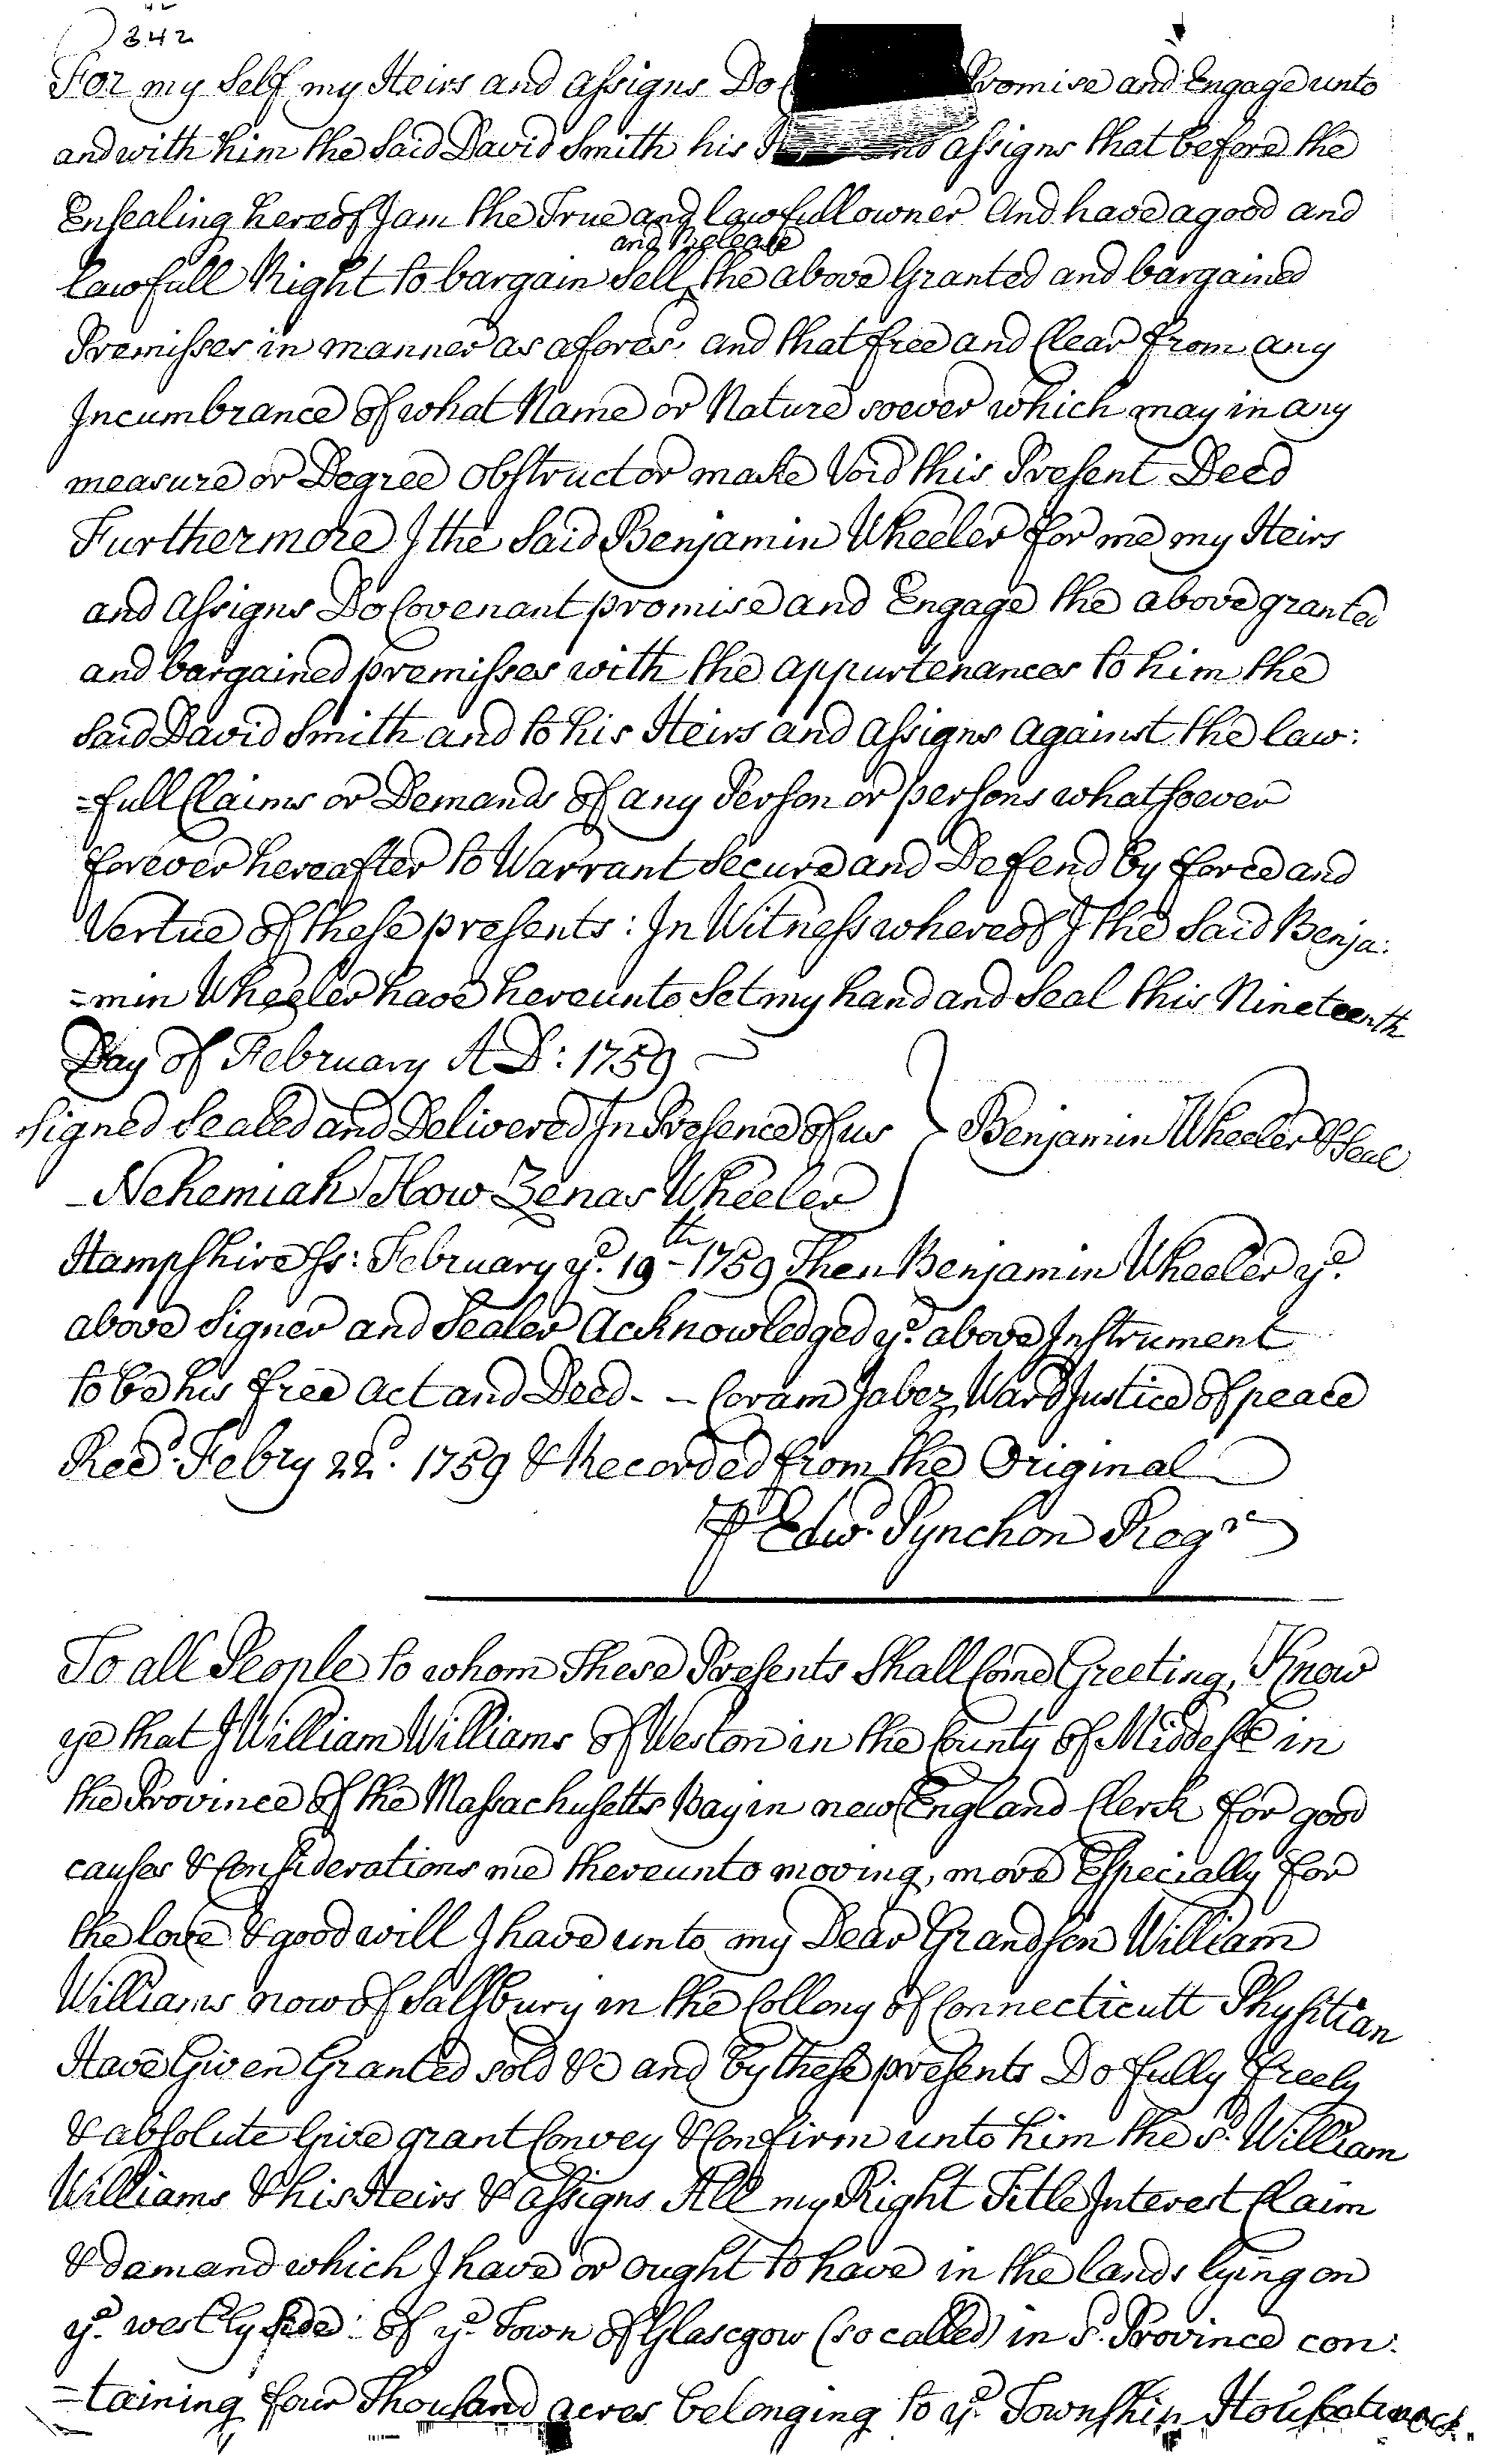 342
For my Self my Heirs and assigns Do Promise and Engage unto
and with him the Said David Smith his and assigns that before the
Ensealing hereof I am the True and lawfull owner And have a good and
and Release
lawfull Right to bargain Sell ‸ the above Granted and bargained
Premisses in manner as afores.d and that free and Clear from any
Incumbrance of what Name or Nature soever which may in any
measure or Degree Obstruct or make Void this Present Deed
Furthermore I the Said Benjamin Wheeler for me my Heirs
and Assigns Do Covenant promise and Engage the above granted
and bargained premisses with the appurtenances to him the
Said David Smith and to his Heirs and assigns against the law:
=full Claims or Demands of any Person or persons whatsoever
forever hereafter to Warrant Secure and Defend by force and
Vertue of these presents: In Witness whereof I the Said Benja:
=min Wheeler have hereunto Set my hand and Seal this Nineteenth
Day of February A D: 1759
Signed Sealed and Delivered In Presence of us } Benjamin Wheeler & Seal
Nehemiah How Zenas Wheeler
Hampshire Ss: February ye. 19th - 1759 Then Benjamin Wheeler ye.
above Signer and Sealer Acknowledged ye. above Instrument
to be his free act and Deed - - Coram Jabez Ward Justice of peace
Recd. Febry 22d. 1759 & Recorded from the Original
P Edwd. Pynchon Regr
To all People to whom These Presents Shall Come Greeting, Know
ye that I William Williams of Weston in the County of Middesx in
the Province of the Massachusetts Bay in new England Clerk for good
causes & Considerations me thereunto moving, more Especially for
the love & good will I have unto my Dear Grandson William
Williams now of Salsbury in the Collony of Connecticutt Physitian
Have Given Granted sold &c and by these presents Do fully freely
& absolute Give grant Convey & Confirm unto him the sd. William
Williams & his Heirs & assigns All my Right Title Interest Claim
& demand which I have or ought to have in the lands lying on
ye. westly side: of ye. Town of Glascgow (so called) in sd. Province con:
=taining four Thousand acres belonging to ye. Township Housatinock